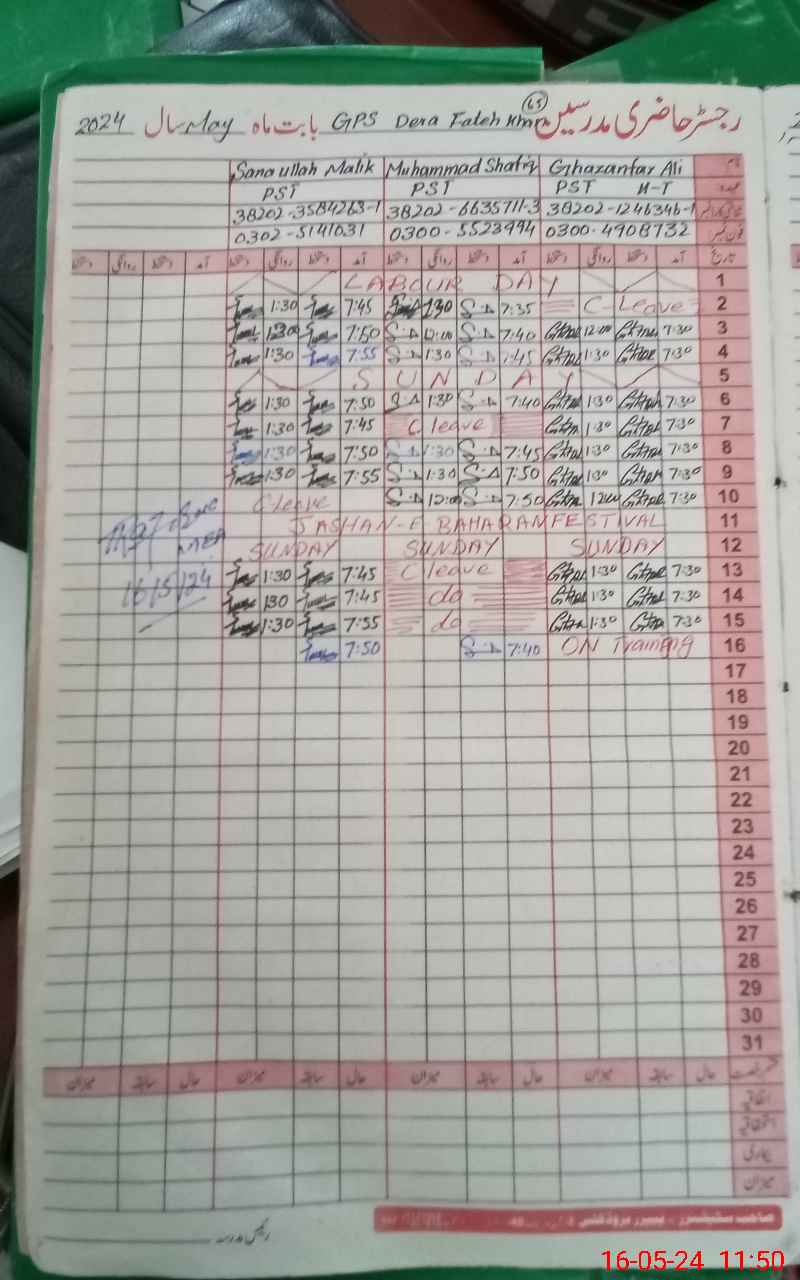 رجسٹر حاضری مدرسین 65 GPS Dera Fateh Khan بابت ماہ May سال 2024
نام Ghazanfar Ali Muhammad Shafiq Sana ullah Malik
عہدہ PST H-T PST PST
38202-1246346-1 38202-6635711-3 38202-3584263-1
فون نمبر 0300-4908732 0300-5523994 0302-5141031
تاریخ آمد دستخط روانگی دستخط آمد دستخط روانگی دستخط آمد دستخط روانگی دستخط آمد دستخط روانگی دستخط
1 LABOUR DAY
2 C-Leave 7:35 1:30 7:45 1:30
3 7:30 12:00 7:40 12:00 7:50 1:30
4 7:30 1:30 7:45 1:30 7:55 1:30
5 SUNDAY
6 7:30 1:30 7:40 1:30 7:50 1:30
7 7:30 1:30 C leave 7:45 1:30
8 7:30 1:30 7:45 1:30 7:50 1:30
9 7:30 1:30 7:50 1:30 7:55 1:30
10 7:30 1200 7:50 12:00 C leave
11 JASHAN-E BAHARAN FESTIVAL
12 SUNDAY SUNDAY SUNDAY
13 7:30 1:30 C leave 7:45 1:30
14 7:30 1:30 do 7:45 130
15 7:30 1:30 do 7:55 1:30
16 ON Training 7:40 7:50
16/5/24
17
18
19
20
21
22
23
24
25
26
27
28
29
30
31
حال سابقہ میزان حال سابقہ میزان حال سابقہ میزان حال سابقہ میزان
اتفاقیہ
استحقاقیہ
بیماری
میزان
رئیس مدرسہ
16-05-24 11:50